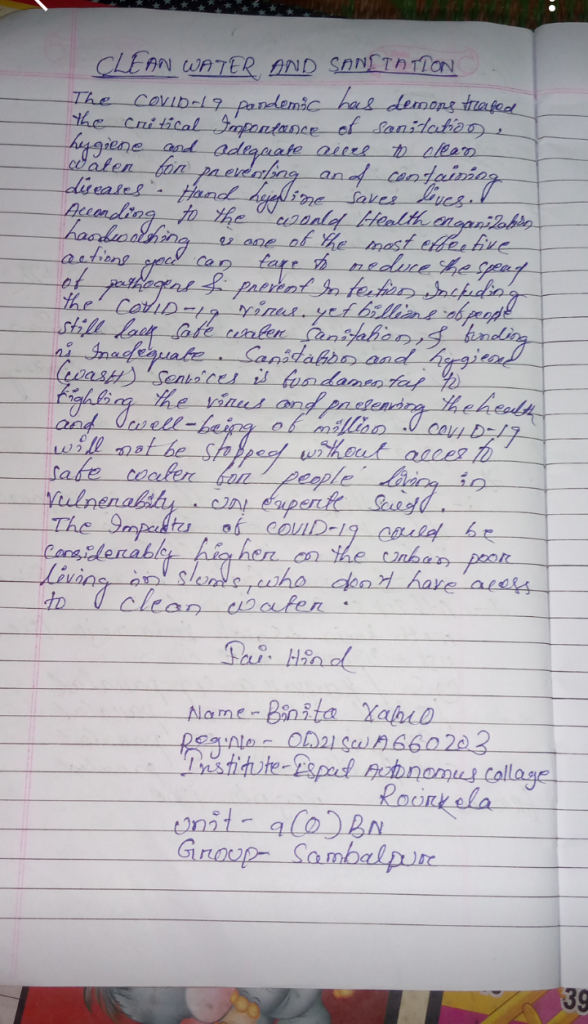 CLEAN WATER AND SANITATION
The COVID-19 pandemic has demonstrated
the critical Importance of sanitation,
hygiene and adequate acces to clean
water for preventing and containing
diseases. Hand hygiene saves lives.
According to the world Health organization
handwashing is one of the most effective
actions you can take to reduce the spead
of pathogens & prevent Infection Including
the COVID-19 virus. yet billions of people
still lack safe water sanitation, & funding
is Inadequate. Sanitation and hygiene
(WASH) services is fundamental to
fighting the virus and preserving the health
and well-being of million. COVID-19
will not be stopped without acces to
safe water for people living in
vulnerability. UN experts said.
The Impacts of COVID-19 could be
considerably higher on the urban poor
living in slums, who don't have acess
to clean water.
Jai Hind
Name - Binita
Reg.No - OD21SWA660203
Institute - Ispat Autonomus Collage
Rourkela
Unit - 9(O) BN
Group - Sambalpur
39